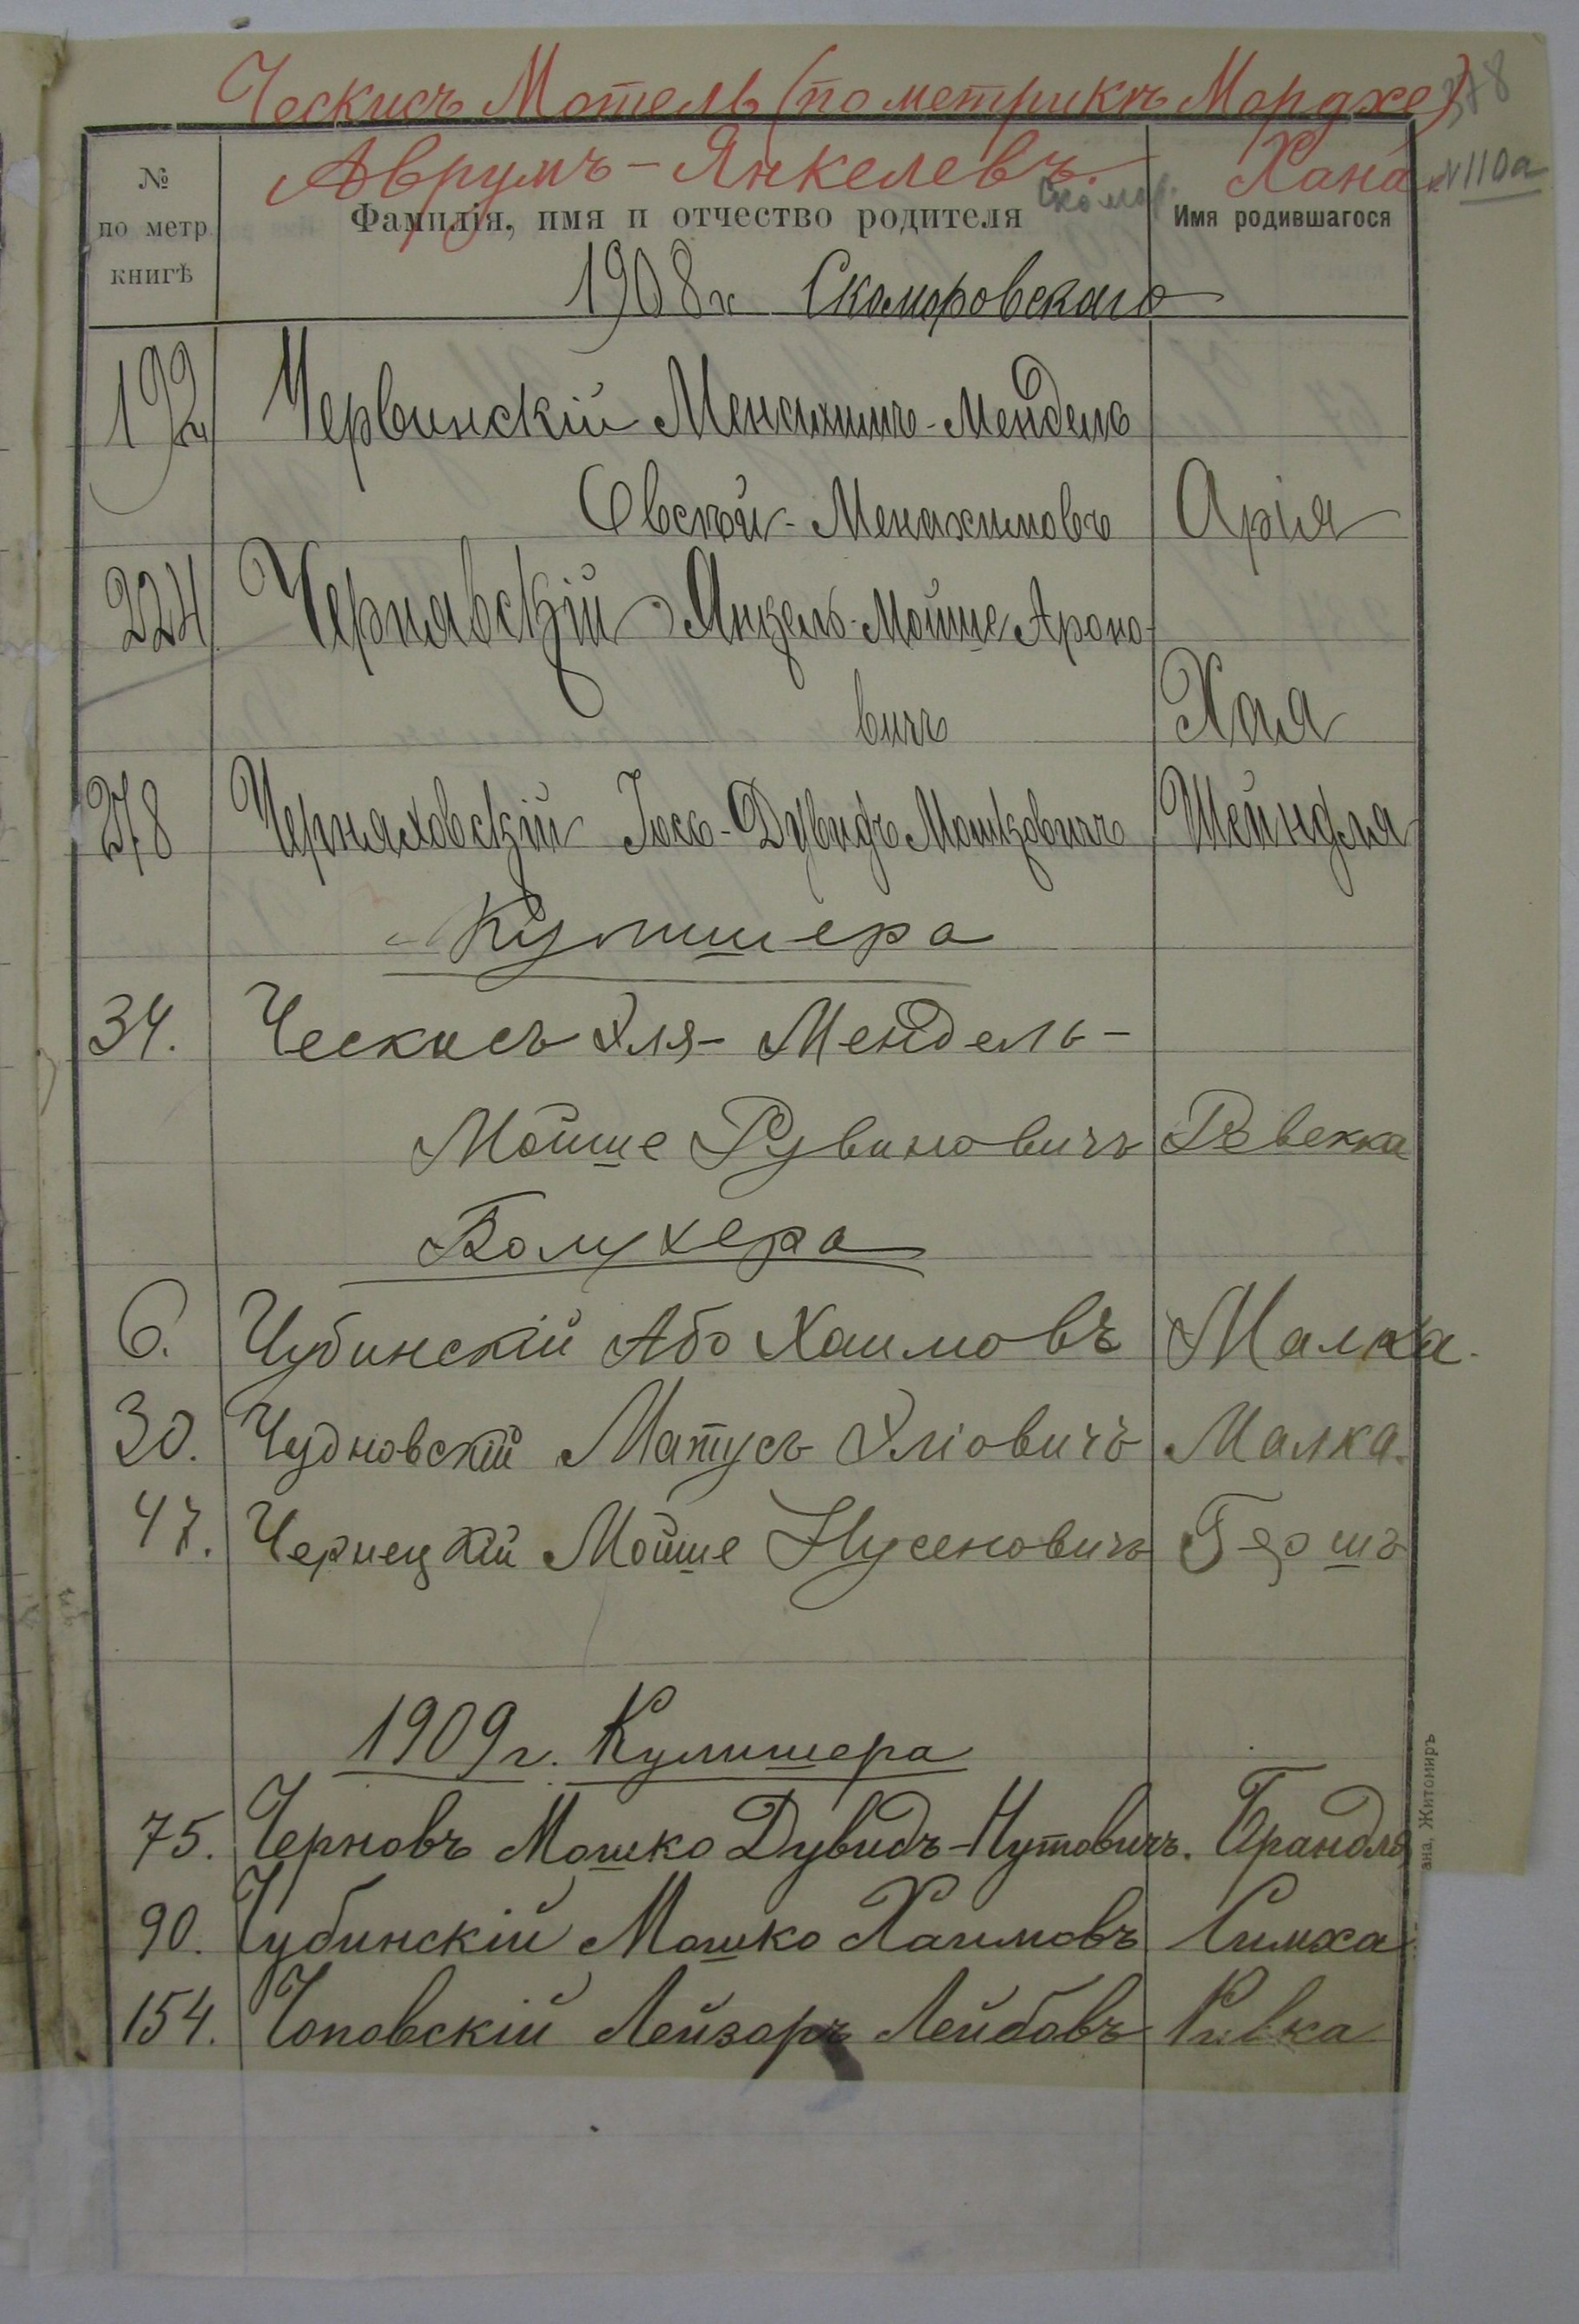 Ческисъ Мотель (по метрикѣ Мордхе)
378
Аврумъ-Янкелевъ. Хана № 110а
Скомор.
№ по метр книгѣ
Фамилія, имя и отчество родителя
Имя родившагося
1908 г. Скоморовскаго
192 Червинскій Менахимъ-Мендель
Овсѣй-Менахимовъ Арія
224 Чернявскій Янкель-Мойше Ароно-
вичъ Хая
278 Черняховскій Іось-Дувидъ Мошковичъ Шейндля
Кулишера
34. Ческисъ Эля-Мендель-
Мойше Рувиновичъ Ревекка
Бомухера
6. Чубинскій Або Хаимовъ Малка.
30. Чудновскій Матусъ Эліовичъ Малка.
47. Чернецкій Мойше Нусеновичъ Гершъ
1909 г. Кулишера
75. Черновъ Мошко Дувидъ-Нутовичъ. Брандля
90. Чубинскій Мошко Хаимовъ Симха
154. Чоповскій Лейзоръ Лейбовъ Ривка
ана, Житомиръ